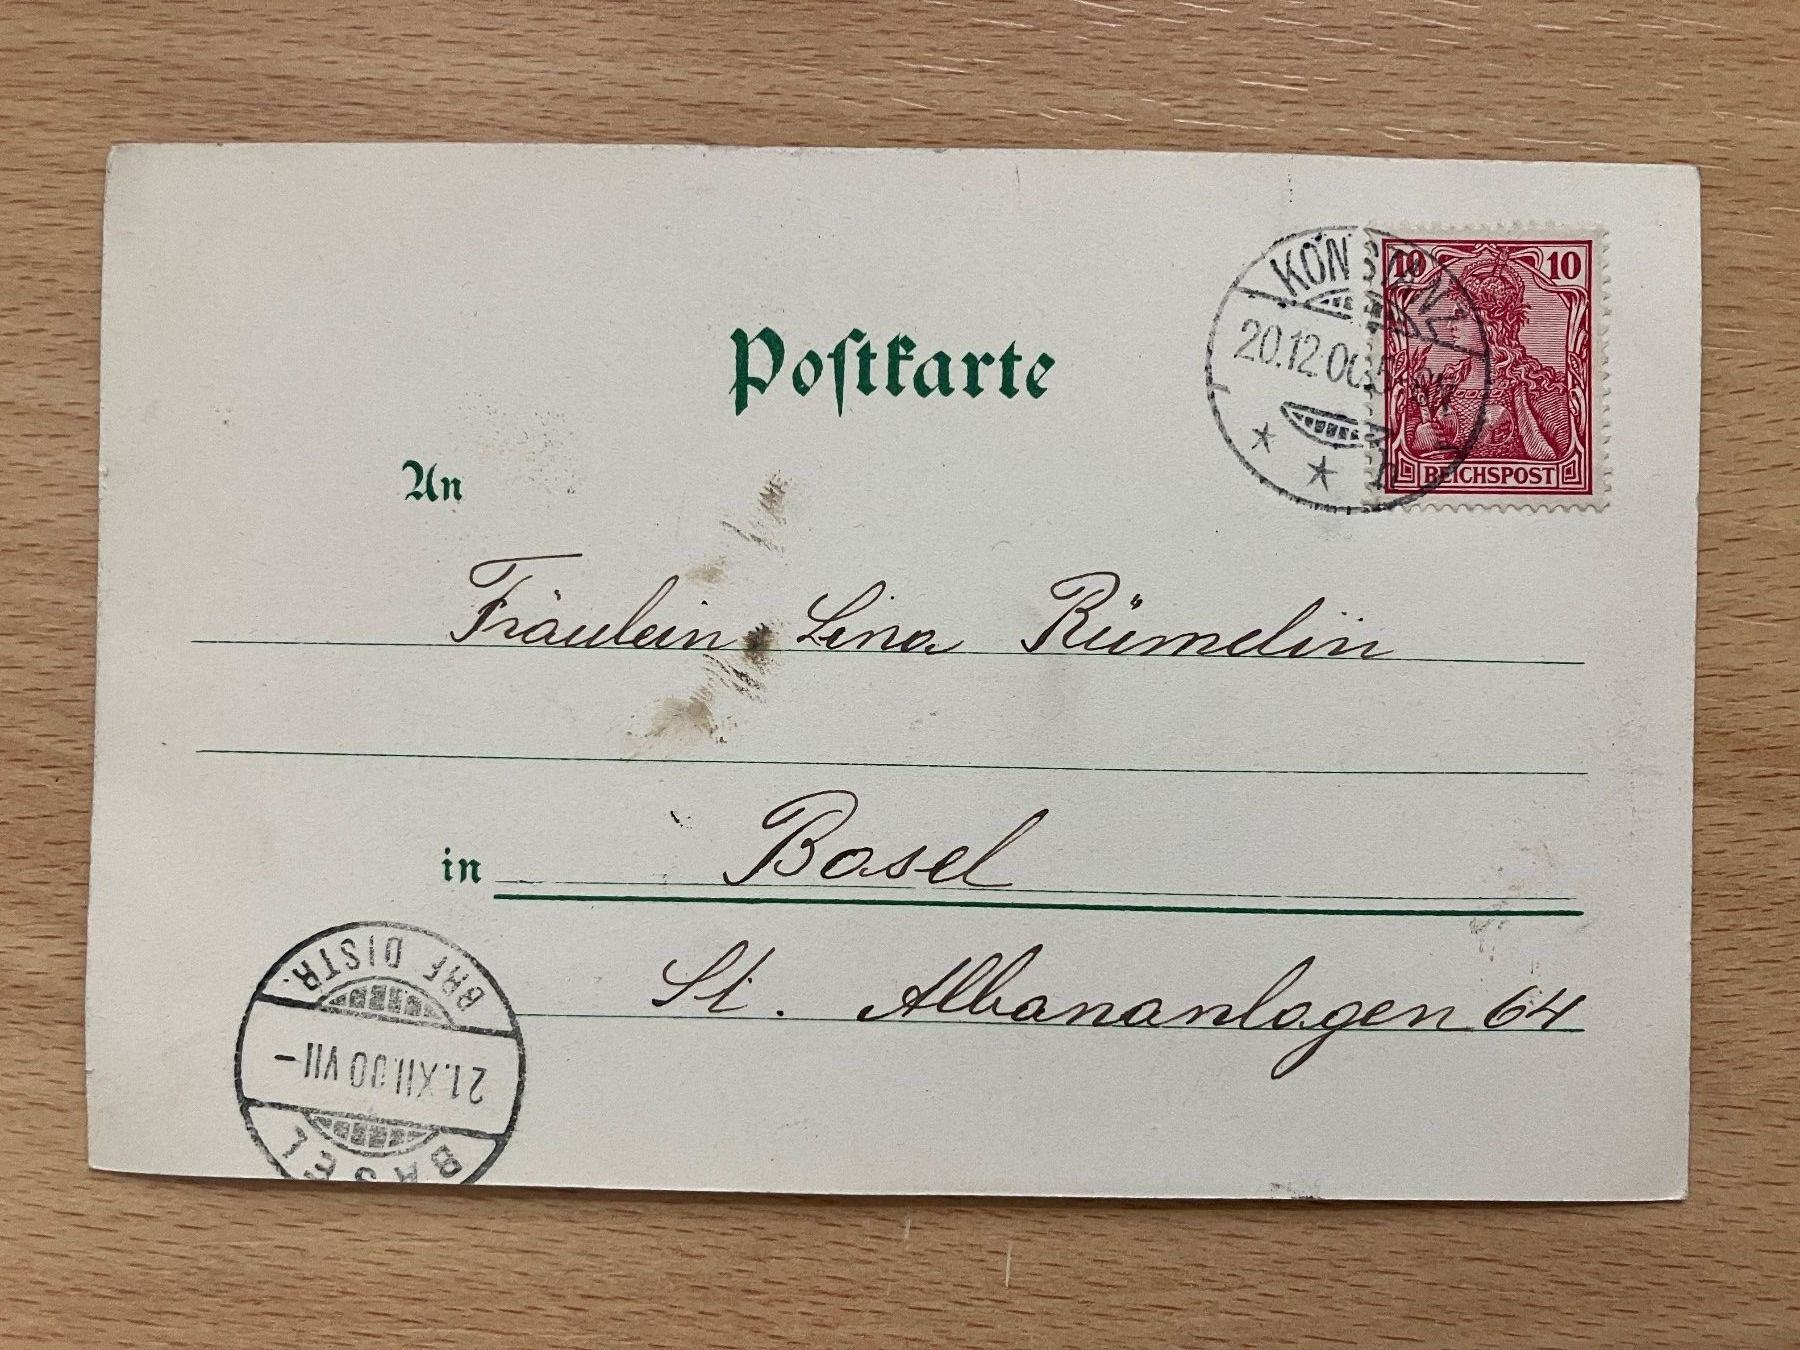 Postkarte
10 10
REICHSPOST
KONSTANZ
20.12.00 5-6N
An
Fräulein Lina Rümelin
in Basel
St. Albananlagen 64
BRF DISTR.
21.XII.00 VII -
BASEL